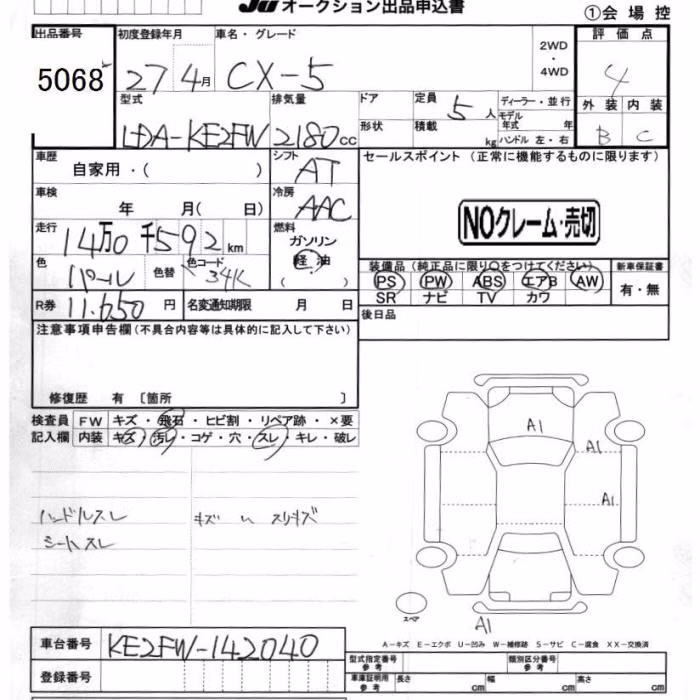 JU オークション出品申込書
①会場控
出品番号 初度登録年月 車名・グレード 2WD・4WD 評価点
5068 27 4月 CX-5 4
型式 排気量 ドア 定員 5人 ディーラー・並行 外装 内装
LDA-KE2FW 2180cc 形状 積載 kg モデル年式 年 ハンドル 左・右 B C
車歴 自家用・( ) シフト AT セールスポイント (正常に機能するものに限ります)
車検 年 月( 日) 冷房 AAC
NOクレーム・売切
走行 14万0千592km 燃料 ガソリン 軽油 ( )
色 パール 色替 色コード 34K
装備品 (純正品に限り○をつけてください) 新車保証書
PS PW ABS エアB AW 有・無
SR ナビ TV カワ
R券 11,650円 名変通知期限 月 日
後日品
注意事項申告欄(不具合内容等は具体的に記入して下さい)
修復歴 有 〔箇所 〕
検査員 FW キズ・飛石・ヒビ割・リペア跡・×要
記入欄 内装 キズ・汚レ・コゲ・穴・スレ・キレ・破レ
A1
A1
A1
ハンドルスレ キズ
シートスレ
スペア
A1
A-キズ E-エクボ U-凹み W-補修跡 S-サビ C-腐食 XX-交換済
車台番号 KE2FW-142040
登録番号
型式指定番号 参考 類別区分番号 参考
車庫証明用 参考 長さ cm 幅 cm 高さ cm